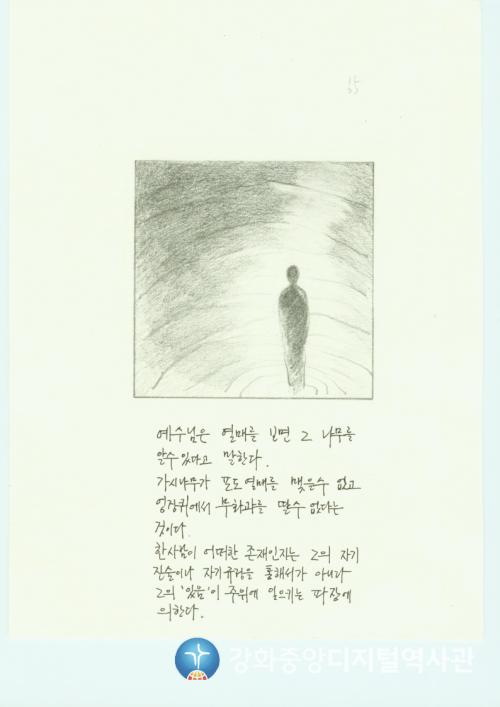 35
예수님은 열매를 보면 그 나무를
알수 있다고 말한다.
가시나무가 포도열매를 맺을수 없고
엉겅퀴에서 무화과를 딸수 없다는
것이다.
한사람이 어떠한 존재인지는 그의 자기
진술이나 자기규정을 통해서가 아니라
그의 '있음'이 주위에 일으키는 파장에
의한다.
강화중앙디지털역사관